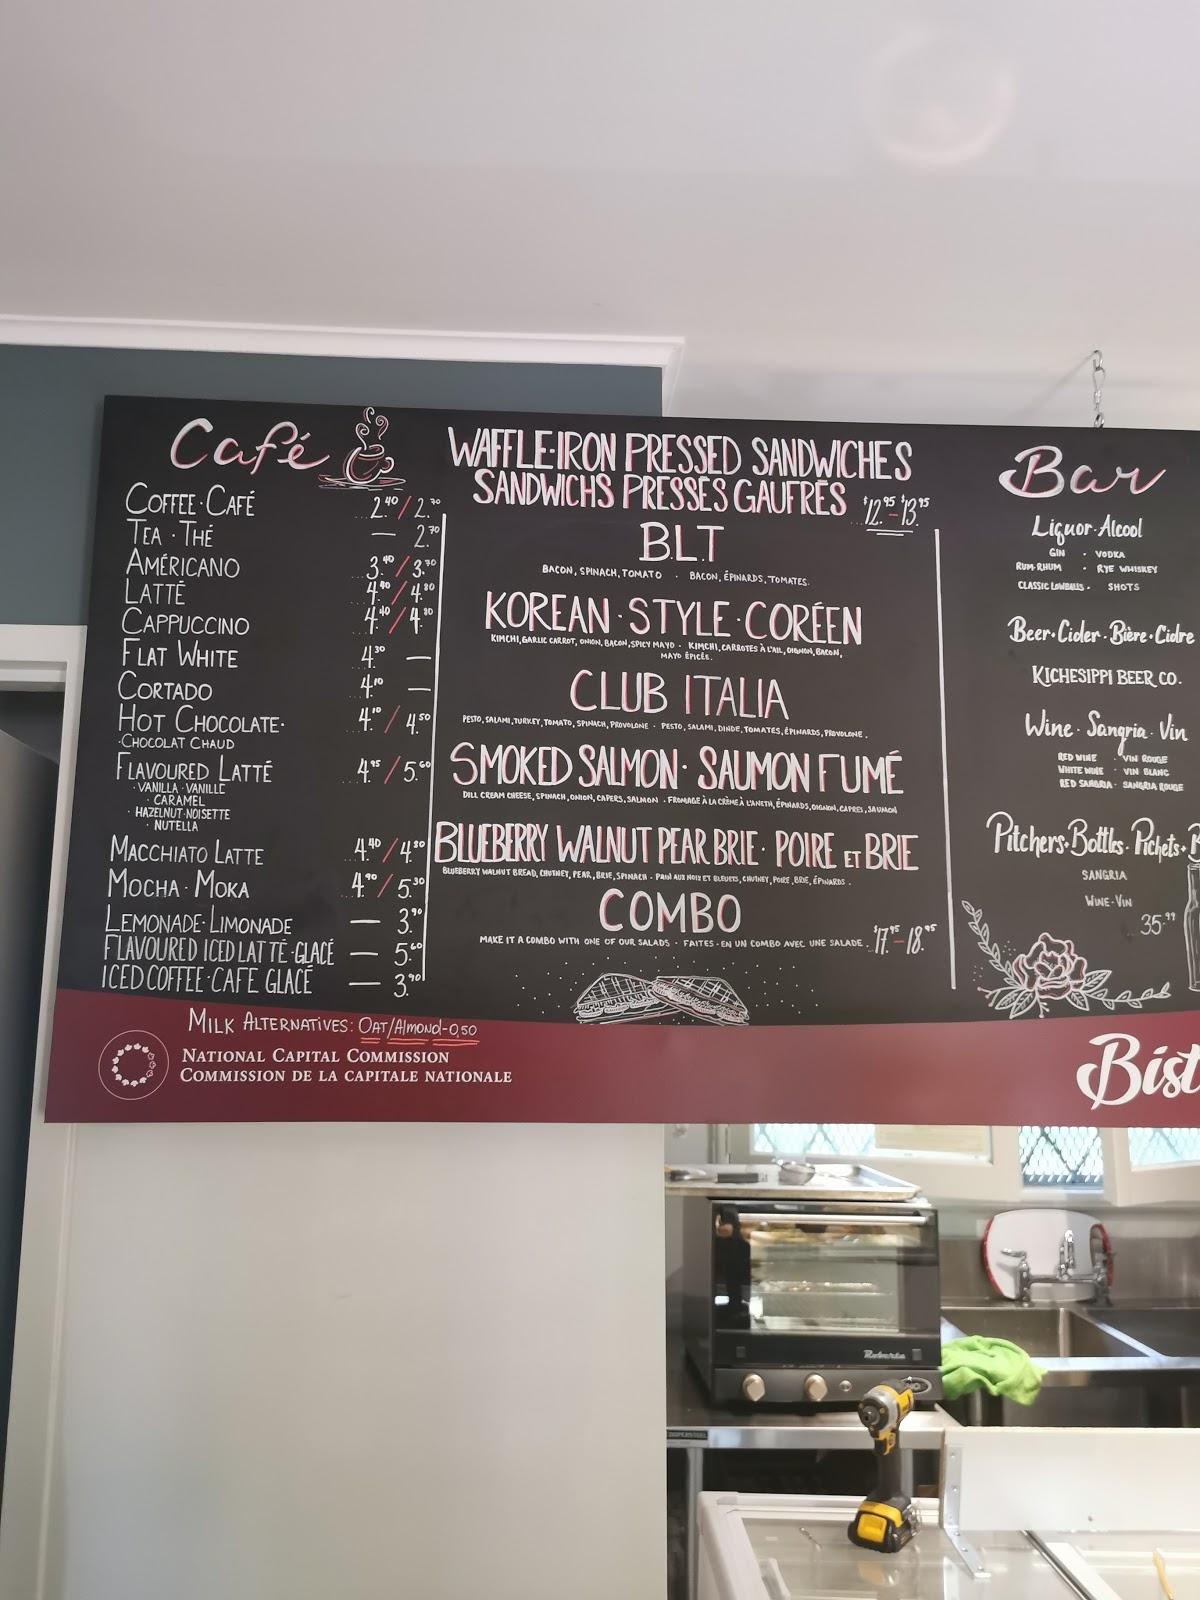 Café
COFFEE·CAFÉ 2.40/2.70
TEA·THÉ — 2.70
AMÉRICANO 3.40/3.70
LATTÉ 4.40/4.80
CAPPUCCINO 4.40/4.80
FLAT WHITE 4.30 —
CORTADO 4.10 —
HOT CHOCOLATE· 4.10/4.50
·CHOCOLAT CHAUD
FLAVOURED LATTÉ 4.95/5.60
·VANILLA·VANILLE
·CARAMEL
·HAZELNUT·NOISETTE
·NUTELLA
MACCHIATO LATTE 4.40/4.80
MOCHA·MOKA 4.90/5.30
LEMONADE·LIMONADE — 3.90
FLAVOURED ICED LATTÉ·GLACÉ — 5.60
ICED COFFEE·CAFE GLACÉ — 3.90
MILK ALTERNATIVES: OAT/ALMOND-0,50
NATIONAL CAPITAL COMMISSION
COMMISSION DE LA CAPITALE NATIONALE
WAFFLE·IRON PRESSED SANDWICHES
SANDWICHS PRESSÉS GAUFRÉS $12.95-$13.95
B.L.T
BACON, SPINACH, TOMATO · BACON, ÉPINARDS, TOMATES.
KOREAN·STYLE·CORÉEN
KIMCHI, GARLIC CARROT, ONION, BACON, SPICY MAYO · KIMCHI, CARROTES À L'AIL, OIGNON, BACON,
MAYO ÉPICÉE.
CLUB ITALIA
PESTO, SALAMI, TURKEY, TOMATO, SPINACH, PROVOLONE · PESTO, SALAMI, DINDE, TOMATES, ÉPINARDS, PROVOLONE.
SMOKED SALMON·SAUMON FUMÉ
DILL CREAM CHEESE, SPINACH, ONION, CAPERS, SALMON · FROMAGE À LA CRÈME À L'ANETH, ÉPINARDS, OIGNON, CAPRES, SAUMON
BLUEBERRY WALNUT PEAR BRIE·POIRE ET BRIE
BLUEBERRY WALNUT BREAD, CHUTNEY, PEAR, BRIE, SPINACH · PAIN AUX NOIX ET BLEUETS, CHUTNEY, POIRE, BRIE, ÉPINARDS.
COMBO
MAKE IT A COMBO WITH ONE OF OUR SALADS · FAITES-EN UN COMBO AVEC UNE SALADE. $17.95-18.95
Bar
Liquor·Alcool
GIN · VODKA
RUM·RHUM · RYE WHISKEY
CLASSIC LOWBALLS · SHOTS
Beer·Cider·Bière·Cidre
KICHESIPPI BEER CO.
Wine·Sangria·Vin
RED WINE · VIN ROUGE
WHITE WINE · VIN BLANC
RED SANGRIA · SANGRIA ROUGE
Pitchers+Bottles·Pichets+B
SANGRIA
WINE·VIN
35.99
Bist